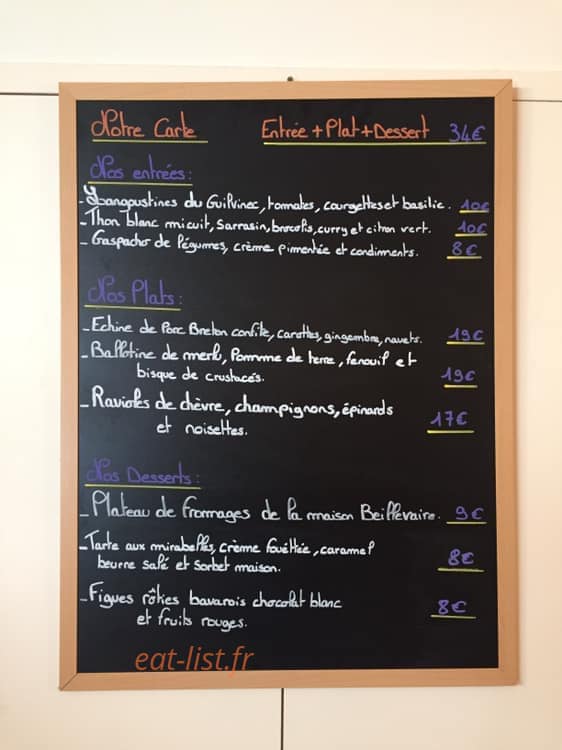 Notre Carte Entrée + Plat + Dessert 34€
Nos entrées:
- Langoustines du Guilvinec, tomates, courgettes et basilic. 10€
- Thon blanc micuit, Sarrasin, brocolis, curry et citron vert. 10€
- Gaspacho de légumes, crème pimentée et condiments. 8€
Nos Plats:
- Echine de Porc Breton confite, carottes, gingembre, navets. 19€
- Ballotine de merlu, Pomme de terre, fenouil et
bisque de crustacés. 19€
- Ravioles de chèvre, champignons, épinards
et noisettes. 17€
Nos Desserts:
- Plateau de fromages de la maison Beillevaire. 9€
- Tarte aux mirabelles, crème fouettée, caramel
beurre salé et sorbet maison. 8€
- Figues rôties bavarois chocolat blanc
et fruits rouges. 8€
eat-list.fr